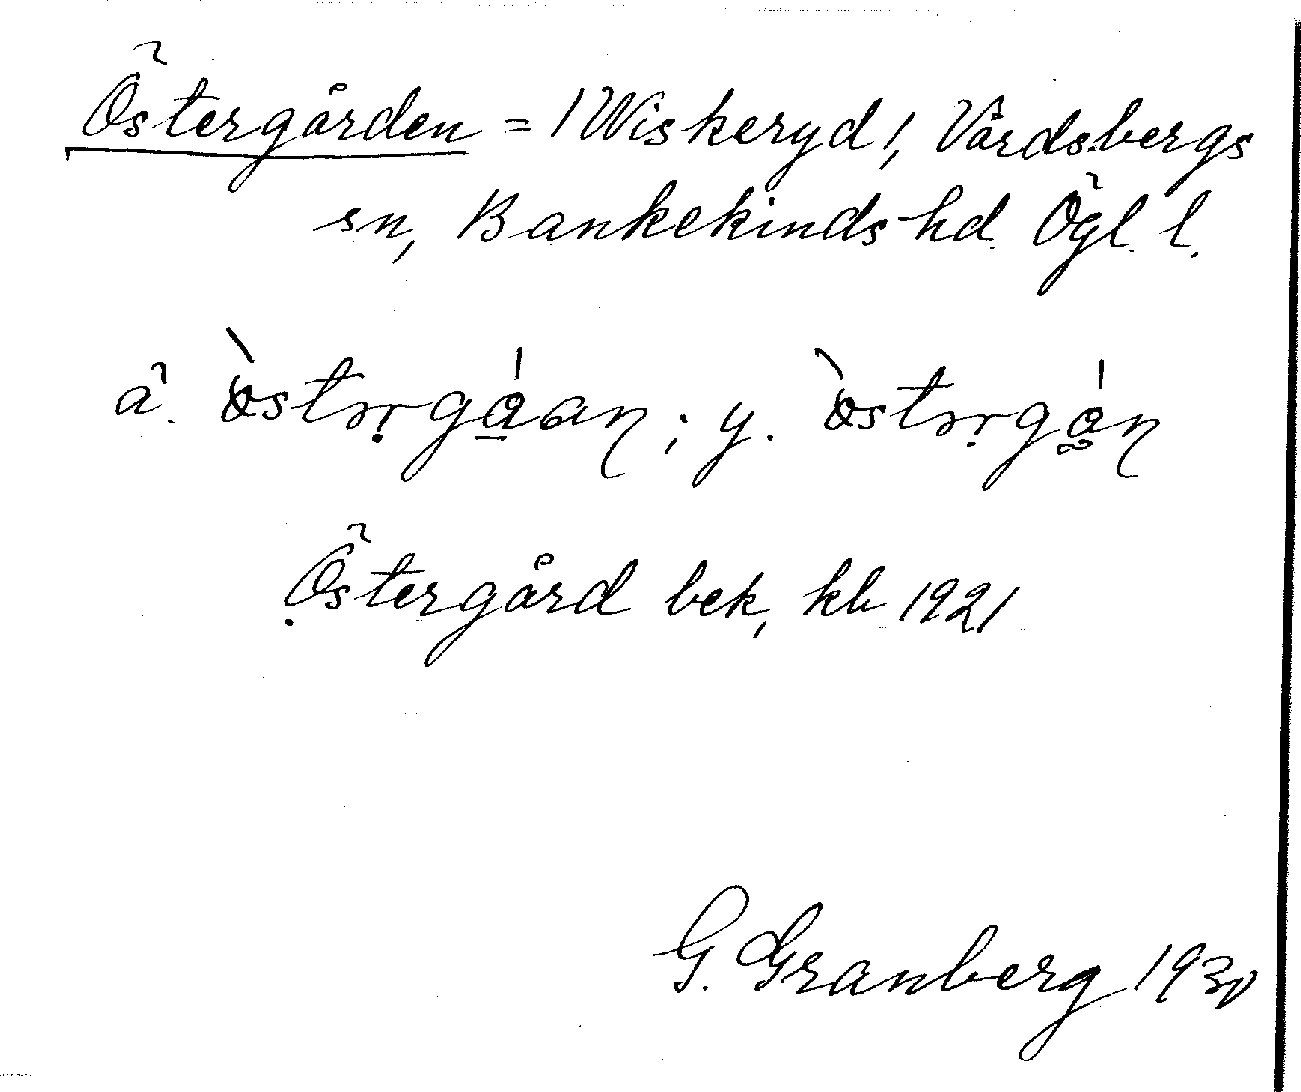 Östergården = /Wiskeryd/, Vårdsbergs
sn, Bankekinds hd. Ögl. l.
ä. ; y.
Östergård bek, kb 1921
G. Granberg 1930